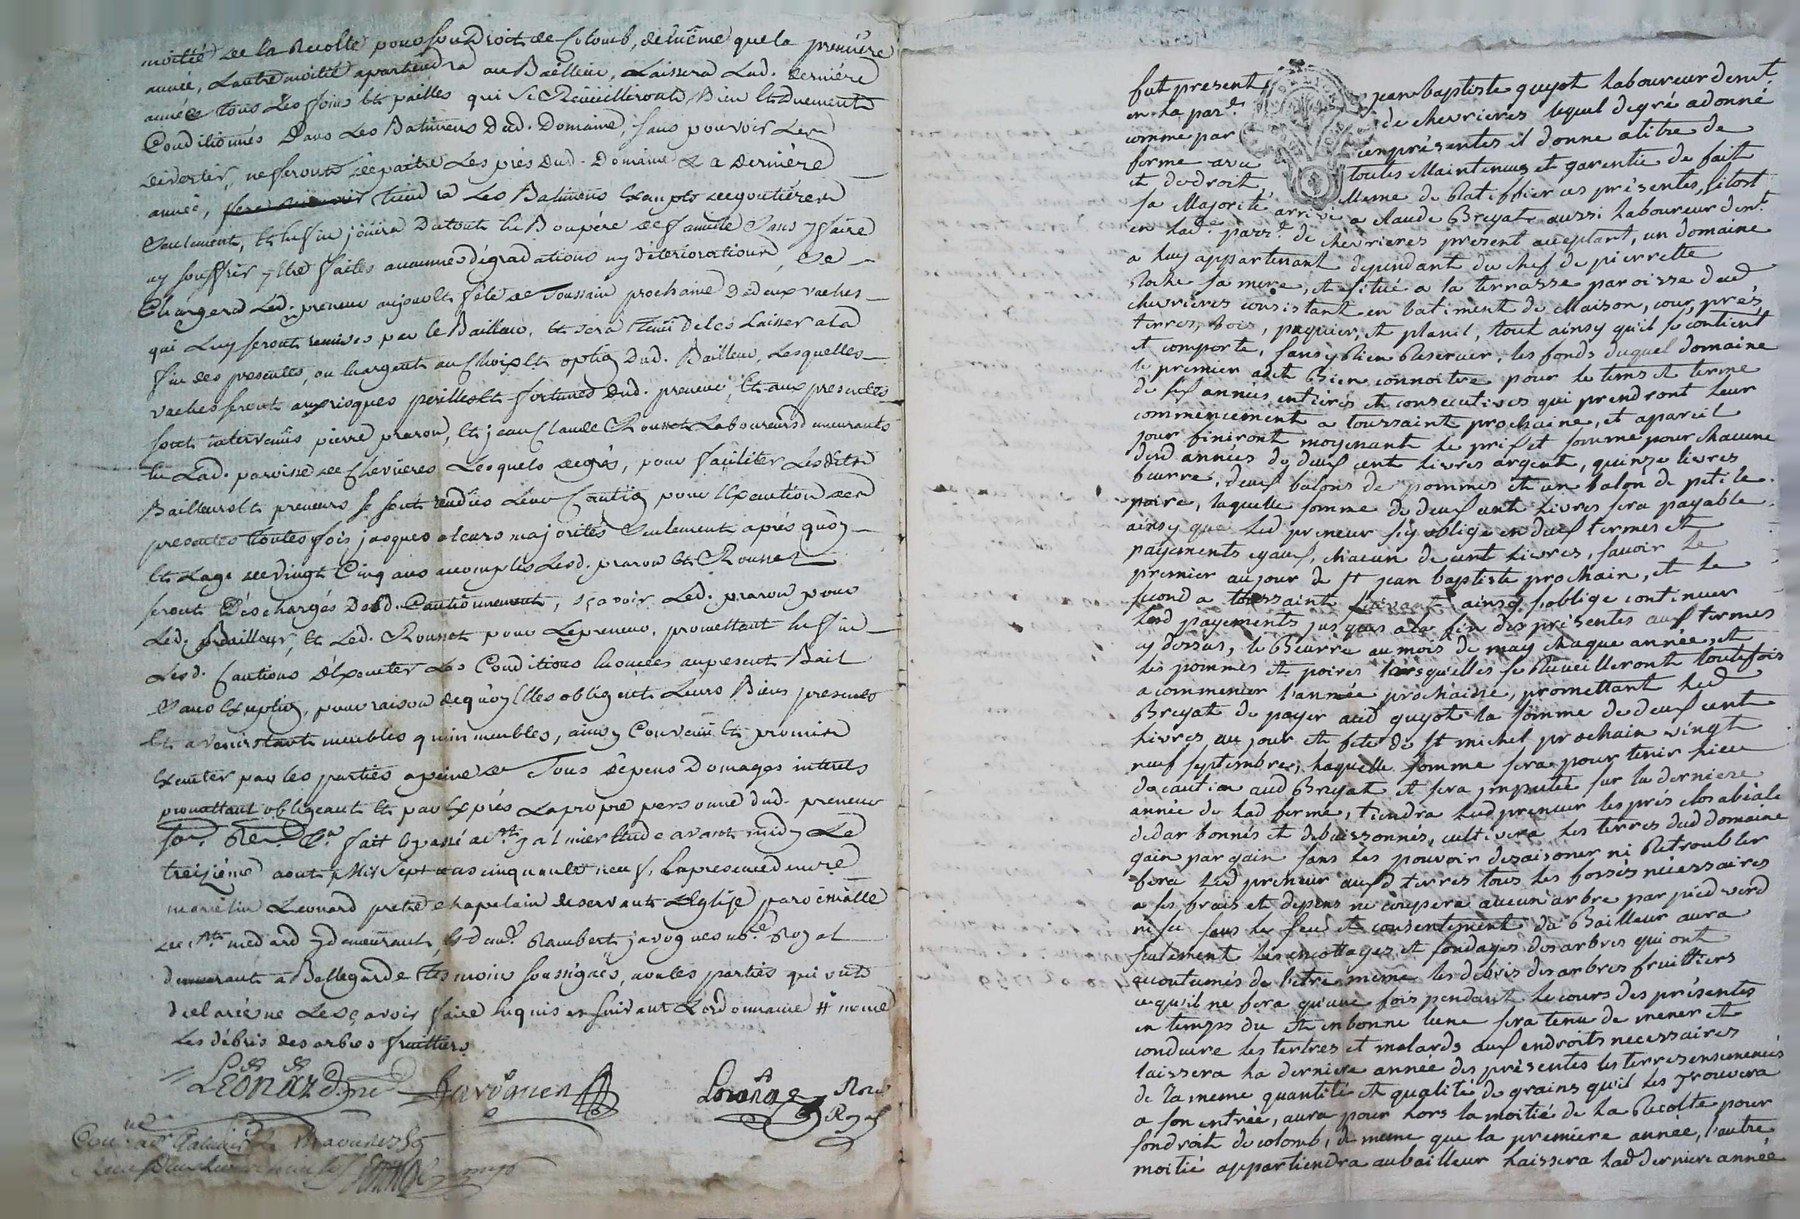 moitié de la Recolte pour son Droit de Colomb, de même que la première
année, L'autre moitié apartiendra au Bailleur, Laissera Lad. derniére
année tous Les foins et pailles qui se Reüeilleront Bien et duement
Conditionnés Dans Les Batimens Dud. Domaine, sans pouvoir Les
divertir, ne feront dépaitre Les prés Dud. Domaine La dernière
année, tiendra Les Batimens Exempts de goutières
Seulement, et enfin joüira Du tout En Bon père de famille Sans y faire
ny souffrir y être faites aucunes dégradations ny détériorations, Se
Chargera Led. preneur aujourd. fête de Toussain prochaine De deux vaches
qui Luy seront remises par le Bailleur, et sera tenü de les Laisser a la
fin des presentes, ou L'argent au Choix et option Dud. Bailleur, Lesquelles
vaches seront aux risques perilles et fortunes Dud. preneur, et aux presentes
sont intervenüs pierre praron, et jean Claude Rousset Laboureurs demeurants
en Lad. paroisse de Chevrieres Lesquels de grés, pour faciliter Lesdits
Bailleur et preneur se sont rendües Leur Caution pour L'Execution des
presentes toutes fois jusques a leurs majorités Seulement après quoy
et L'age de vingt Cinq ans accomplis Lesd. praron et Rousset
seront Déchargés Dud. Cautionnement, sçavoir Led. praron pour
Led. Bailleur, et Led. Rousset pour Le preneur, promettant Enfin
Lesd. Cautions d'Executer Les Conditions Enoncées au present Bail
Sans Exception, pour raison de quoy Elles obligent Leurs Biens presents
et avenir tant meubles qu'immeubles, ainsy Convenü et promis
Executer par les parties a peine de Tous Dépens Domages interets
promettant obligeant et par Exprés La propre personne dud. preneur
fait et passé a St. galmier Etude avant midy Le
treizième aout Mil sept cens cinquante neuf, En presence de mre
Leonard pretre chapelain deservant L'Eglise paroissialle
de St. medard y demeurant et de mr. Rambert javogues nre. Royal
demeurant à Bellegarde témoins soussignés, avec les parties qui ont
declaré ne Le sçavoir faire Enquis en suivant L'ordonnance # meme
Les débris des arbres fruitiers
Léonard pre Javogues Lorange Nore
Royal
fut present jean baptiste guyot laboureur demt.
en la par.e de chevrieres lequel de gré a donné
comme par ces présentes il donne a titre de
ferme avec toutes Maintenues et garentie de fait
et de droit, Meme de Ratiffier ces présentes, sitost
sa Majorité arrivée a Claude Breyat aussi laboureur demt.
en lade. parse. de chevrieres present acceptant, un domaine
a luy appartenant dependant du chef de pierrette
Roche sa mere, et situé a la terrasse paroisse dud
chevrieres consistant en batiment de Maison, cour, prés
terres, bois, paquier, et planil, tout ainsy qu'il se contient
et comporte, sans y Rien Reserver, les fonds duquel domaine
le premier a dit Bien connoitre pour le tems et terme
de six années entieres et consecutives qui prendront leur
commencement a toussaint prochaine, et a pareil
jour finiront moyenant le prix et somme pour chacune
desd années de deux cent livres argent, quinze livres
beurre, deux balons de pommes et un balon de petite
poire, laquelle somme de deux cent livres sera payable
ainsy que led preneur s'y oblige en deux termes et
payements egaux, chacun de cent livres, savoir le
premier au jour de st jean baptiste prochain, et le
second a toussaint suivant ainsy s'oblige continuer
lesd payements jusques a la fin des présentes aux termes
cy dessus, le Beurre au mois de may chaque année et
les pommes et poires lorsquelles se Recueilleront toutefois
a commencer l'année prochaine, promettant led
Breyat de payer aud guyot la somme de deux cent
livres, au jour et fete de st michel prochain vingt
neuf septembre, laquelle somme sera pour tenir lieu
de caution aud Breyat et sera imputée sur la derniere
année de lad ferme, tiendra led preneur les prés clos abialé
dedarbonnés et debuissonnés, cultivera les terres dud domaine
gain par gain sans les pouvoir desaisoner ni Retroubler
fera led preneur auxd terres tous les fossés nécessaires
a ses frais et depens ne coupera aucun arbre par pied verd
ni sec sans le sceu et consentement du Bailleur aura
seulement les emottages et fondages des arbres qui ont
accoutumés de l'etre même les debris des arbres fruittiers
ce qu'il ne fera qu'une fois pendant le cours des présentes
en temps du et en bonne lune sera tenu de mener et
conduire les tertres et molards aux endroits necessaires
laissera la derniere année des présentes les terres ensemencés
de la meme quantité et qualité de grains qu'il les trouvera
a son entrée, aura pour lors la moitié de la Recolte pour
son droit de colomb, de meme que la premiere année, l'autre
moitié appartiendra au bailleur laissera lad derniere année